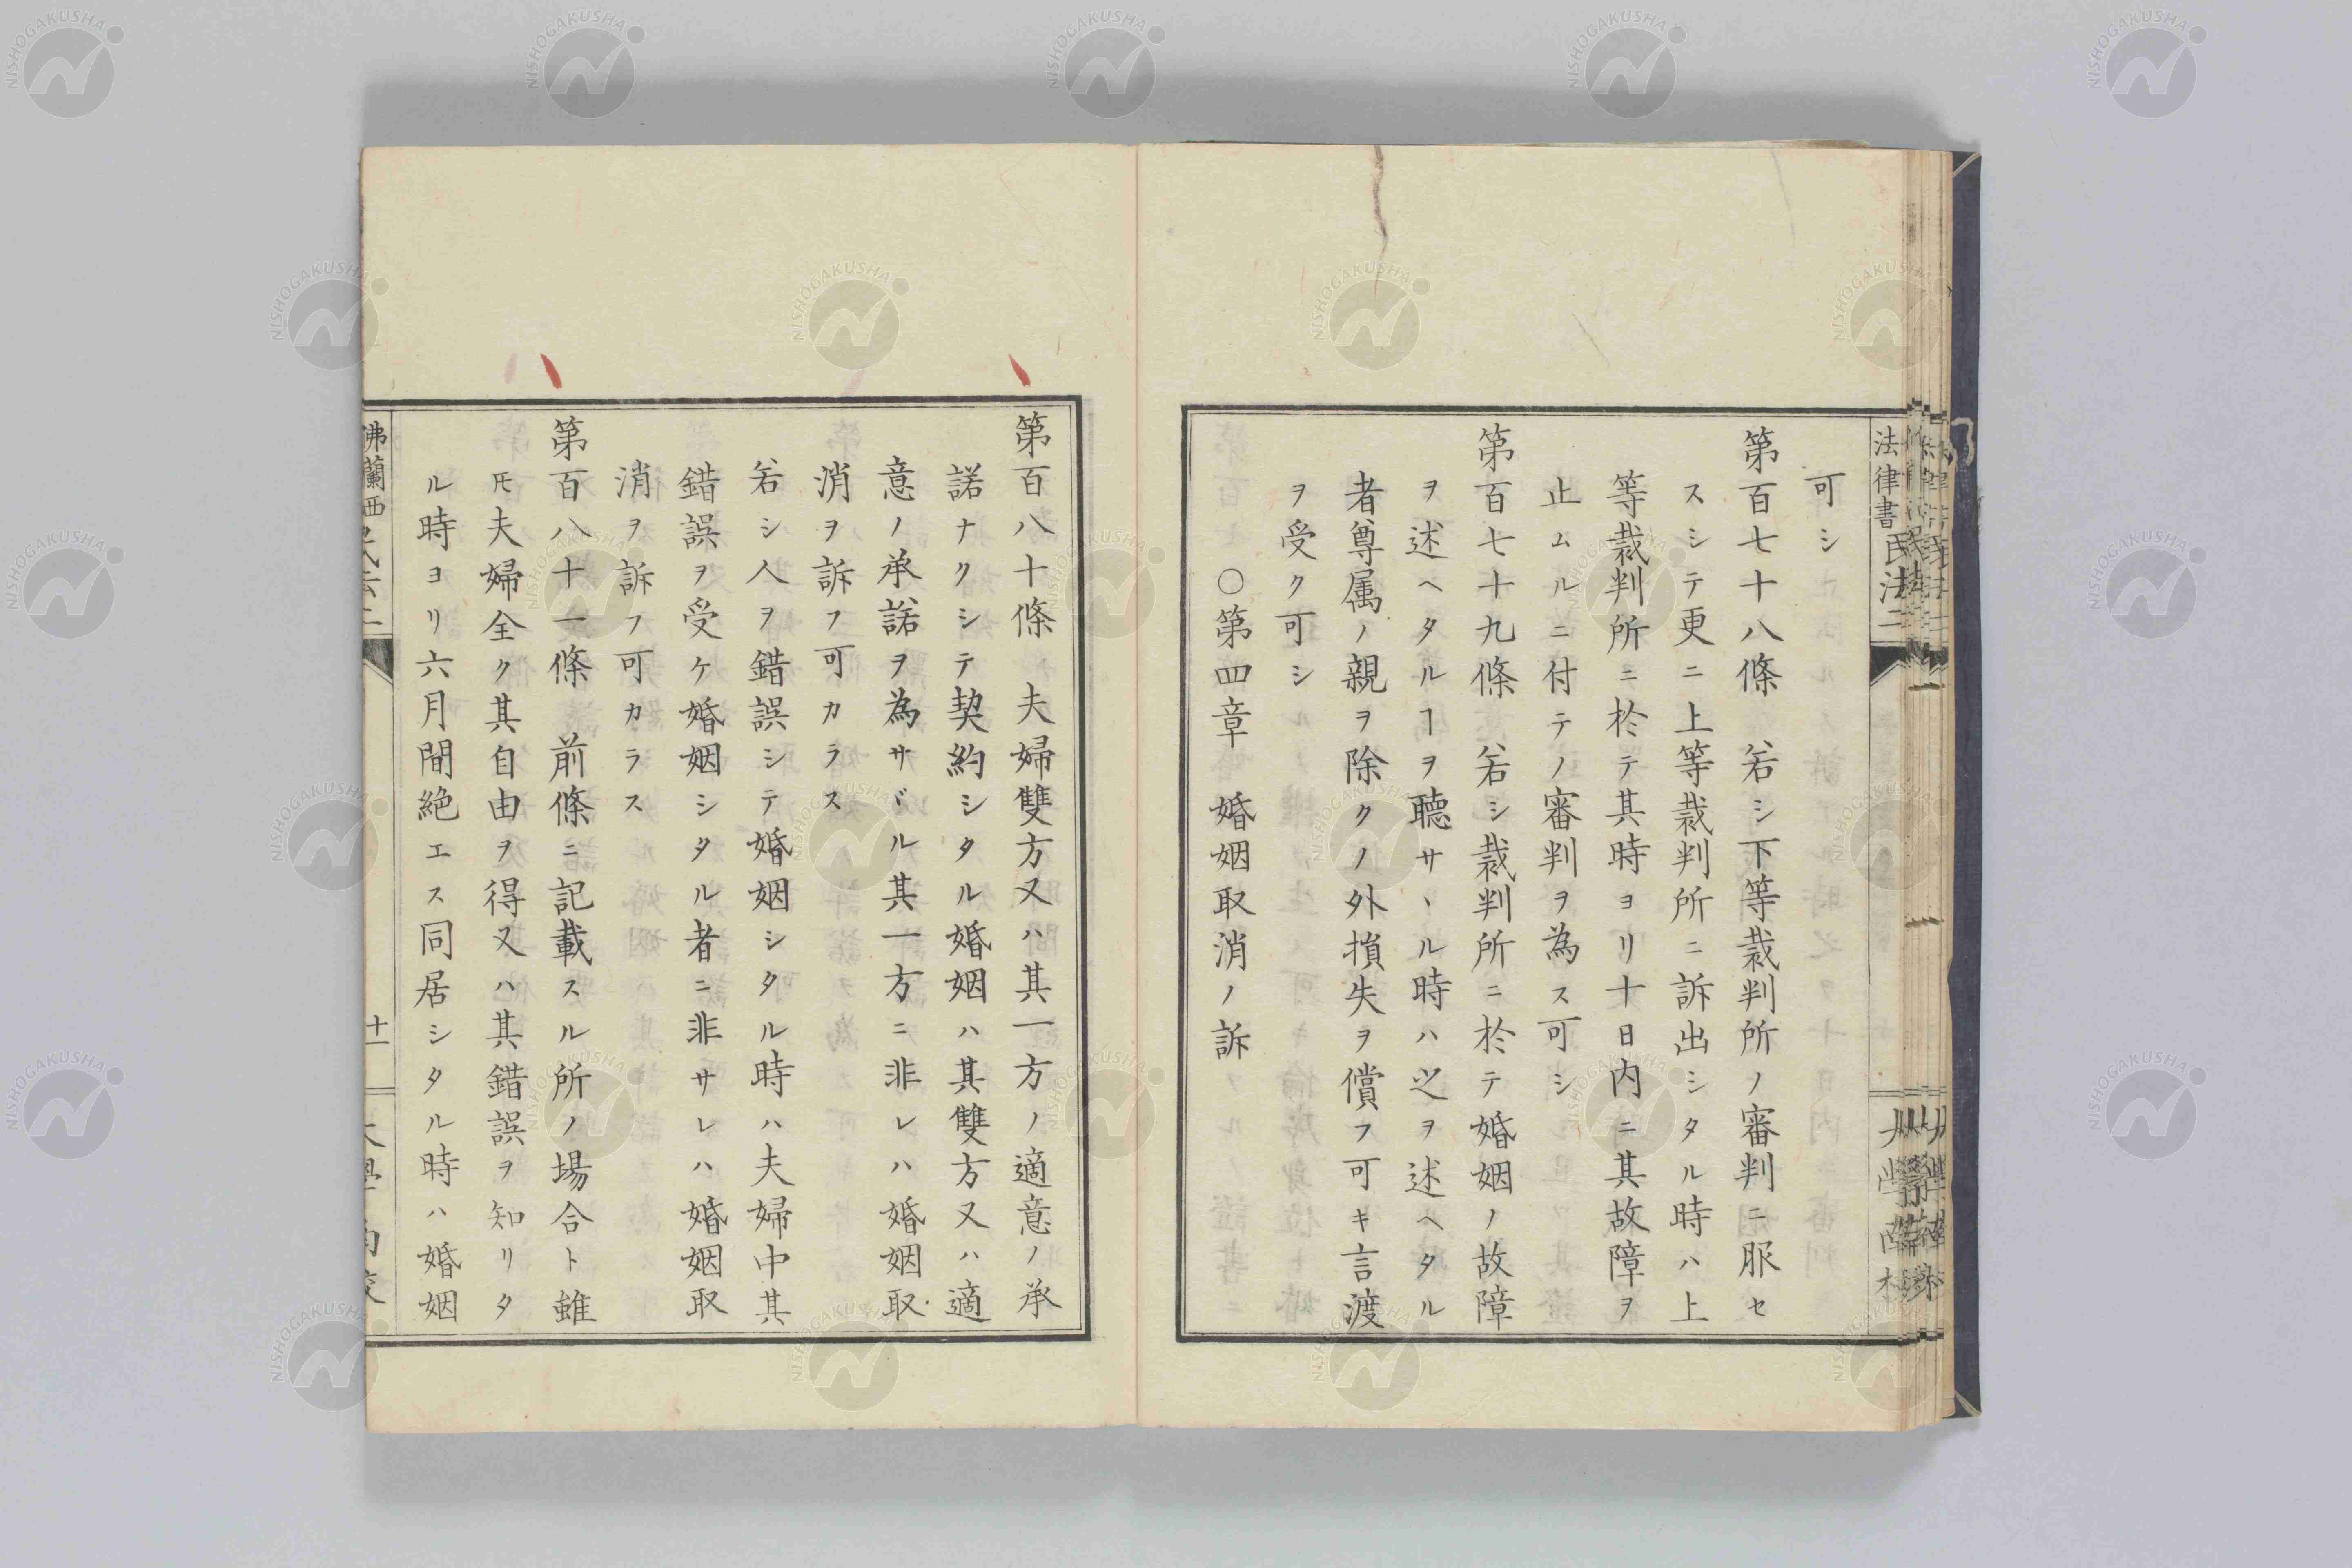 法律書民法二
可シ
第百七十八條 若シ下等裁判所ノ審判ニ服セ
スシテ更ニ上等裁判所ニ訴出シタル時ハ上
等裁判所ニ於テ其時ヨリ十日内ニ其故障ヲ
止ムルニ付テノ審判ヲ為ス可シ
第百七十九條 若シ裁判所ニ於テ婚姻ノ故障
ヲ述ヘタルヿヲ聴サヽル時ハ之ヲ述ヘタル
者尊属ノ親ヲ除クノ外損失ヲ償フ可キ言渡
ヲ受ク可シ
○第四章 婚姻取消ノ訴
第百八十條 夫婦雙方又ハ其一方ノ適意ノ承
諾ナクシテ契約シタル婚姻ハ其雙方又ハ適
意ノ承諾ヲ為サヾル其一方ニ非レハ婚姻取
消ヲ訴フ可カラス
若シ人ヲ錯誤シテ婚姻シタル時ハ夫婦中其
錯誤ヲ受ケ婚姻シタル者ニ非サレハ婚姻取
消ヲ訴フ可カラス
第百八十一條 前條ニ記載スル所ノ場合ト雖
𪜈夫婦全ク其自由ヲ得又ハ其錯誤ヲ知リタ
ル時ヨリ六月間絶エス同居シタル時ハ婚姻
佛蘭西民法二
十一
大學南校
NISHOGAKUSHA